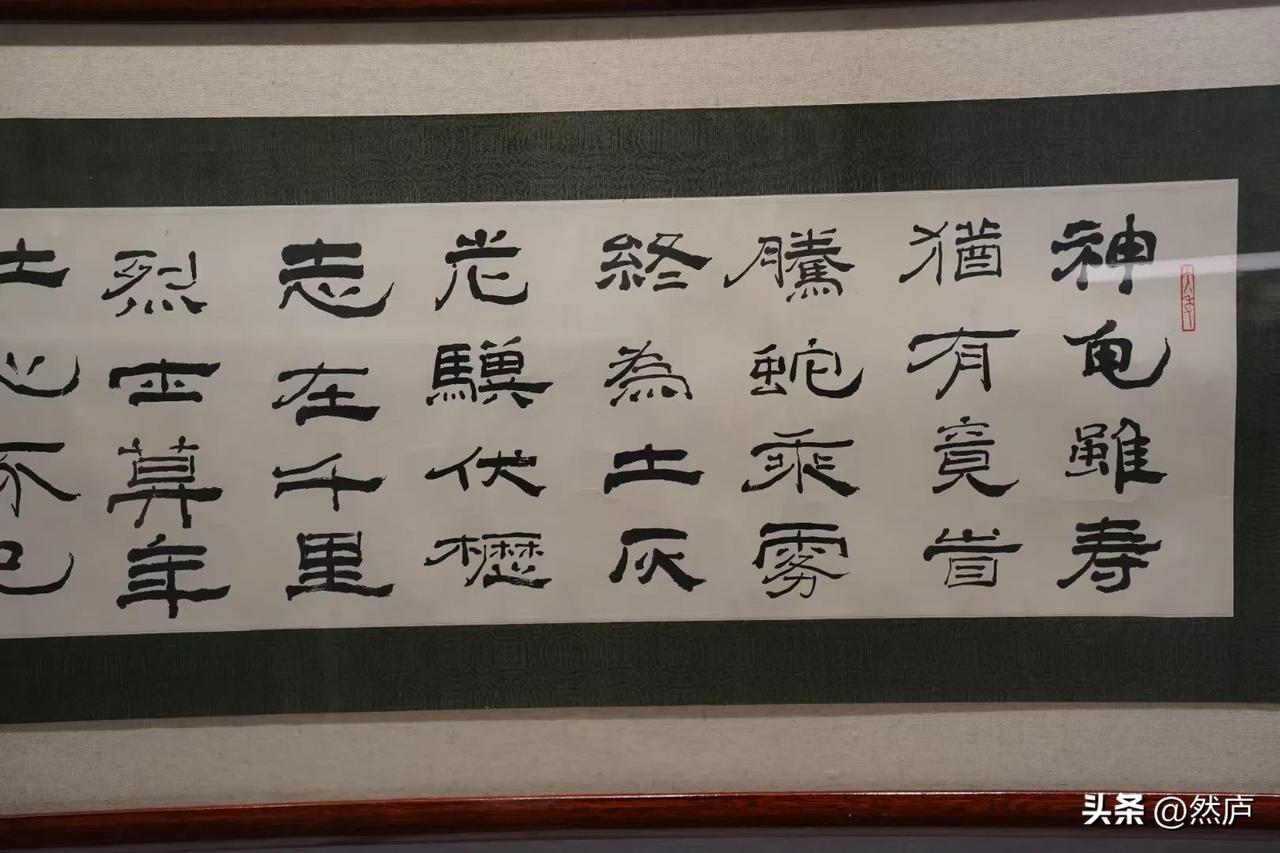 神龟雖寿
猶有竟旹
騰蛇乘雾
終為土灰
老驥伏櫪
志在千里
烈士暮年
壮心不已
头条 @然庐